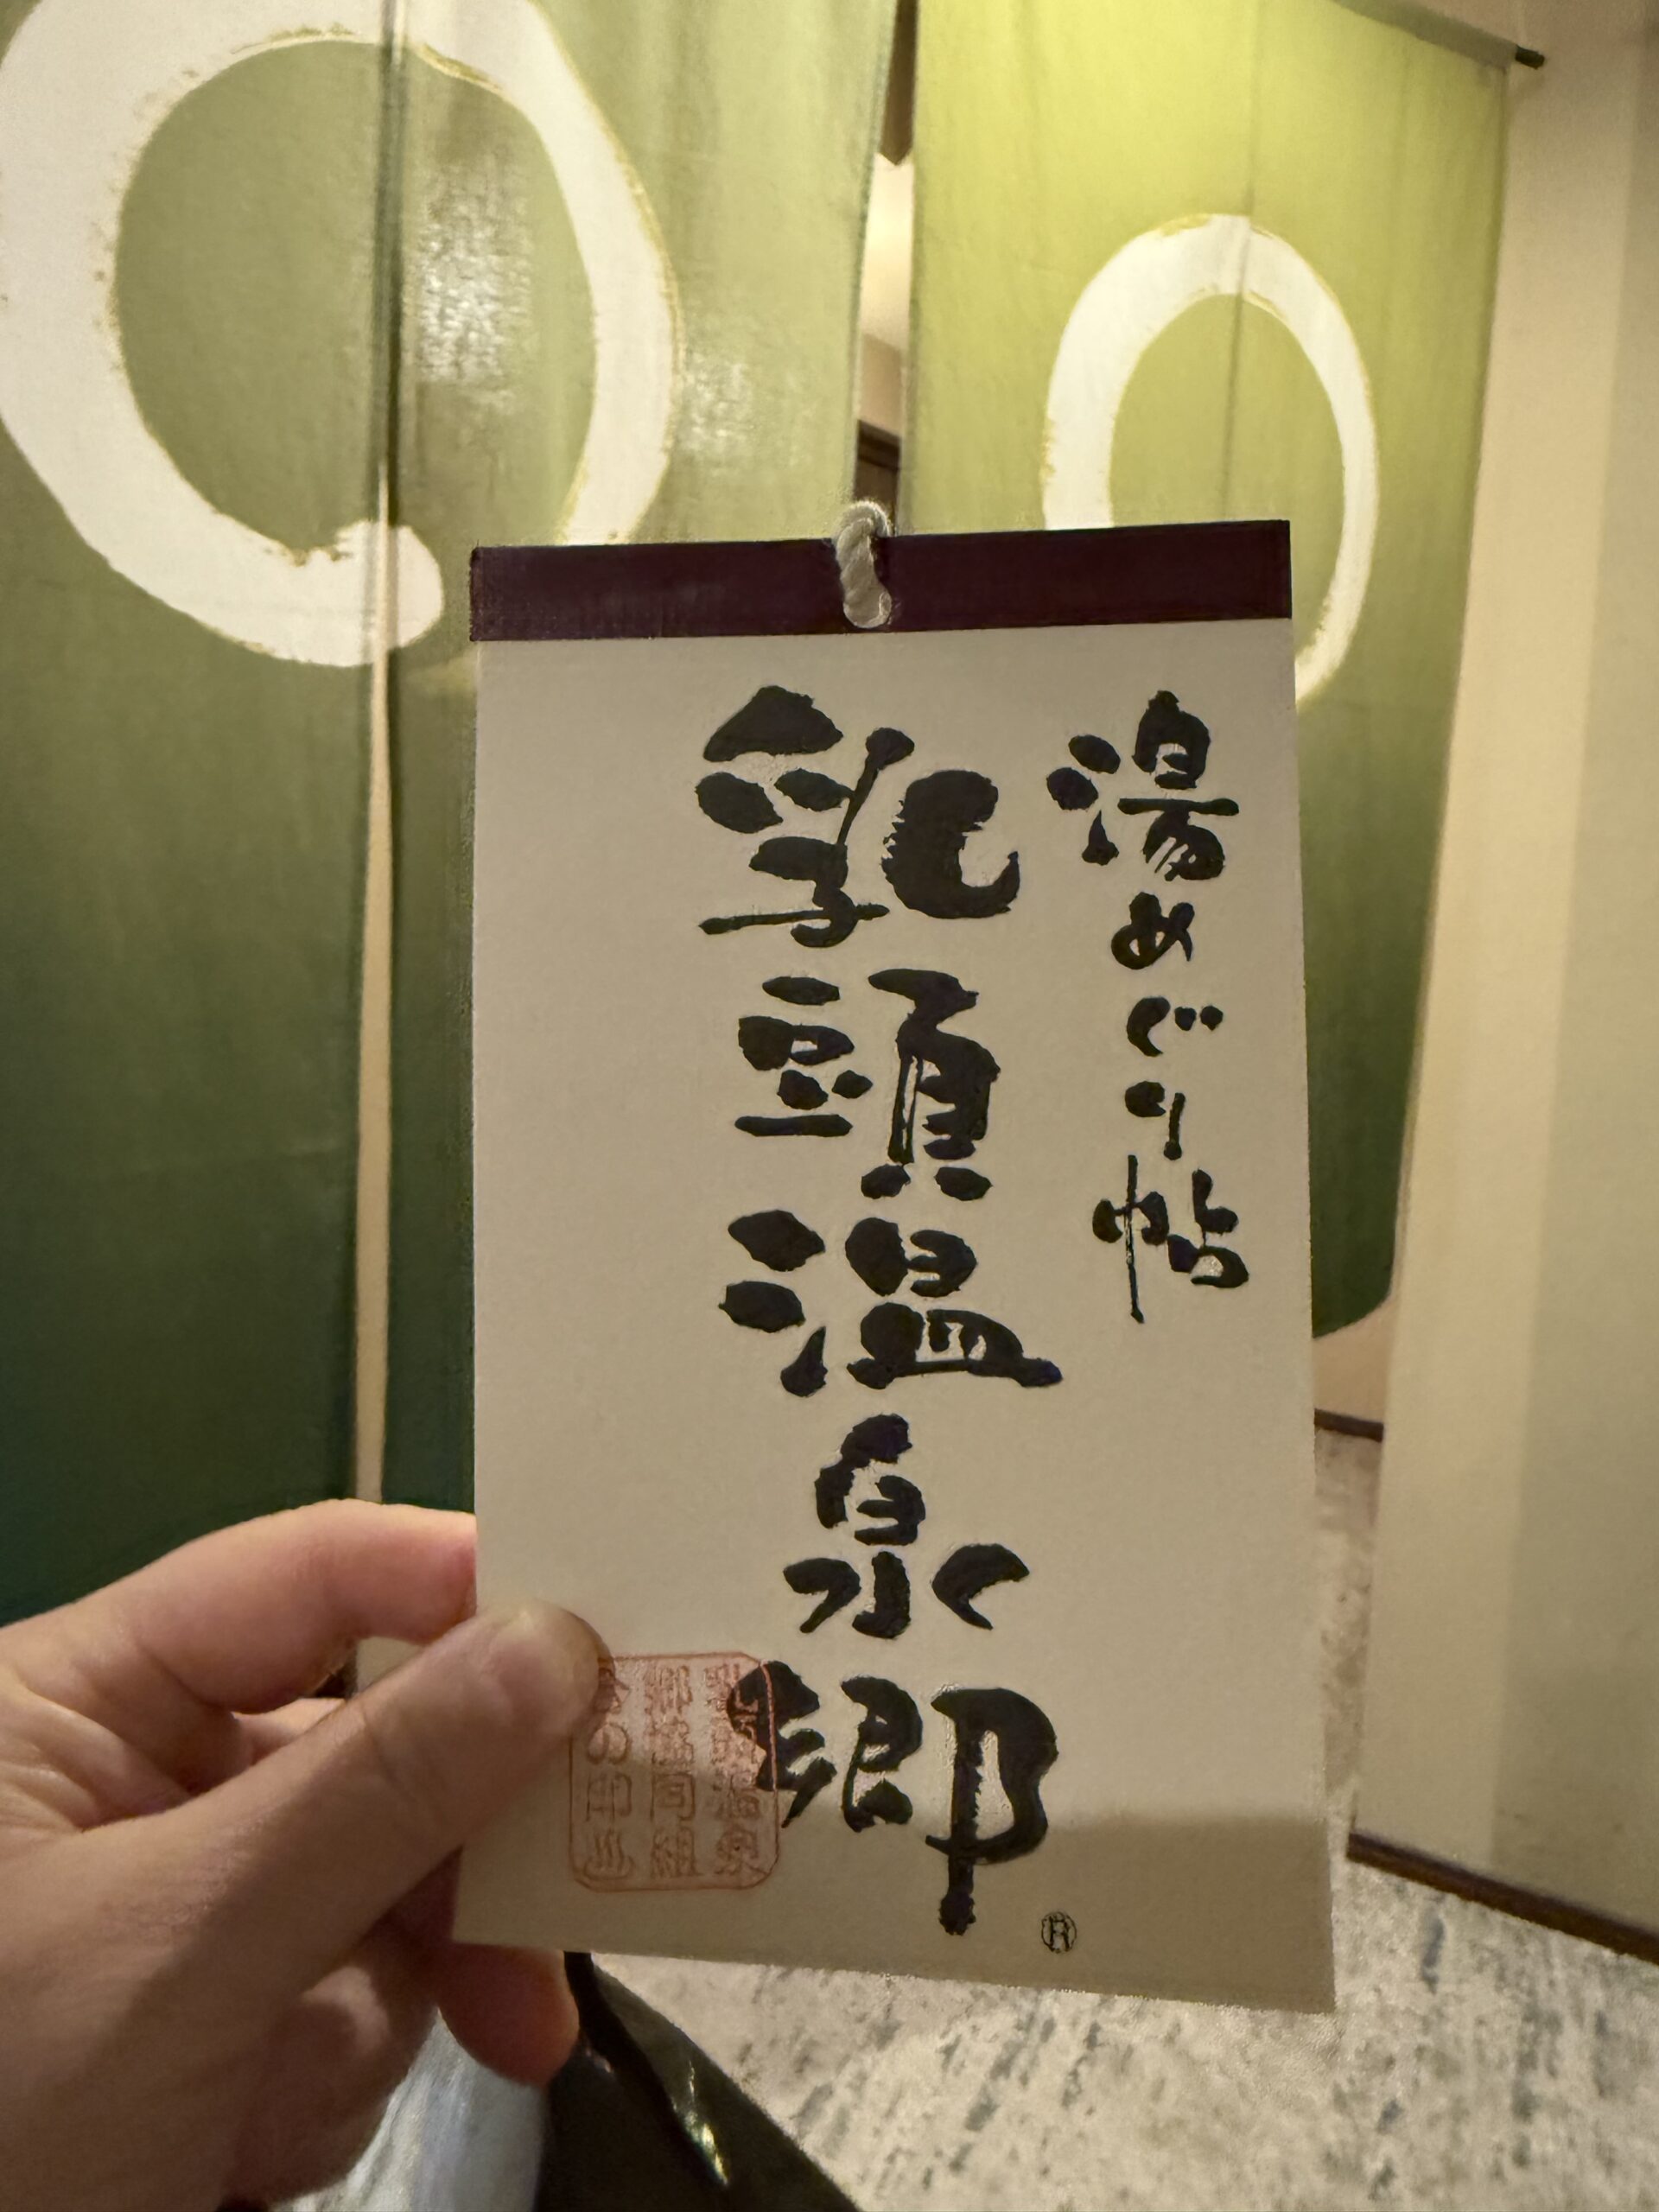 湯めぐり帖
乳頭温泉郷
乳頭温泉
郷協同組
合の印
®